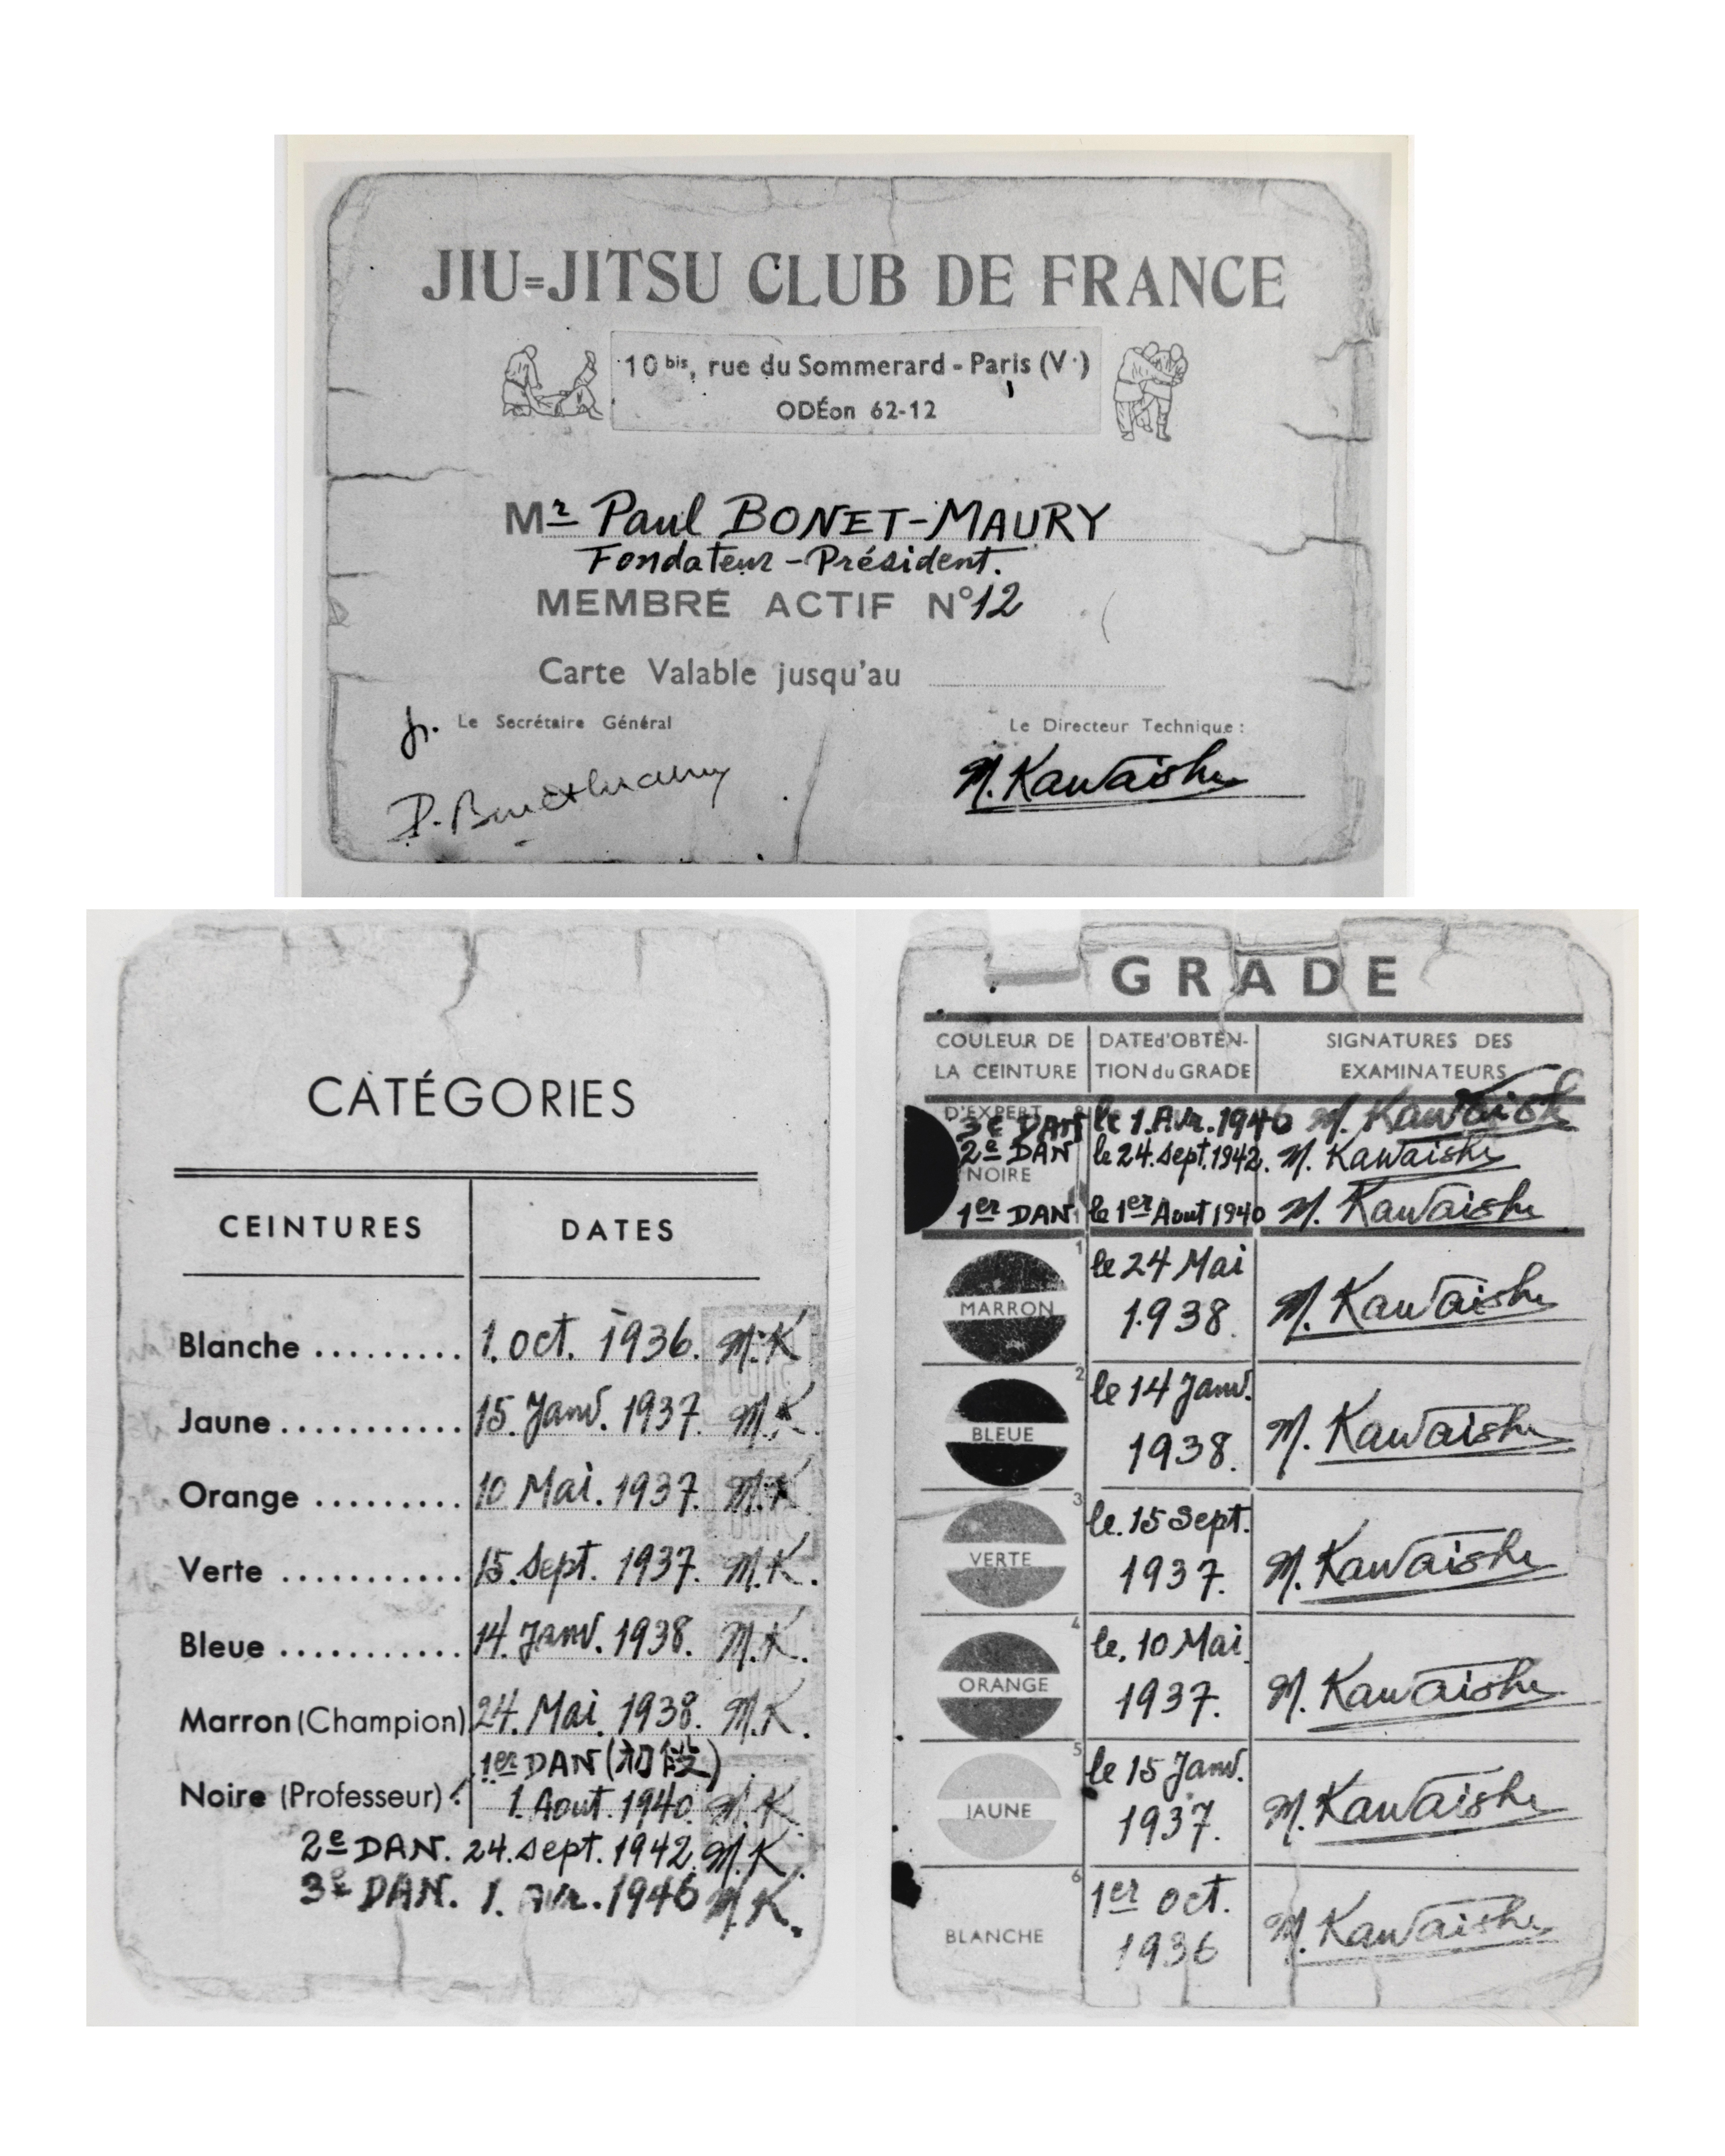 JIU=JITSU CLUB DE FRANCE
10 bis, rue du Sommerard - Paris (Ve)
ODÉon 62-12
Mr Paul BONET-MAURY
Fondateur-Président.
MEMBRE ACTIF N°12
Carte Valable jusqu'au
Le Secrétaire Général
Le Directeur Technique :
P. Bonet-Maury
M. Kawaishi
CATÉGORIES
CEINTURES DATES
Blanche ......... 1. oct. 1936. M.K
Jaune ........... 15. Janv. 1937. M.K.
Orange ......... 10 Mai. 1937. M.K
Verte ........... 15. Sept. 1937. M.K.
Bleue ........... 14. Janv. 1938. M.K.
Marron (Champion) 24. Mai. 1938. M.K.
1er DAN (初段)
Noire (Professeur) : 1. Aout. 1940. M.K
2e DAN. 24. Sept. 1942. M.K.
3e DAN. 1. Avr. 1946 M.K.
GRADE
COULEUR DE LA CEINTURE
DATE d'OBTENTION du GRADE
SIGNATURES DES EXAMINATEURS
D'EXPERT
3e DAN le 1. Avr. 1946 M. Kawaishi
2e DAN le 24. Sept. 1942. M. Kawaishi
NOIRE
1er DAN le 1er Aout 1940 M. Kawaishi
1
MARRON le 24 Mai 1938. M. Kawaishi
2
BLEUE le 14 Janv. 1938. M. Kawaishi
3
VERTE le. 15 Sept. 1937. M. Kawaishi
4
ORANGE le. 10 Mai 1937. M. Kawaishi
5
JAUNE le 15 Janv. 1937. M. Kawaishi
6
BLANCHE 1er oct. 1936 M. Kawaishi